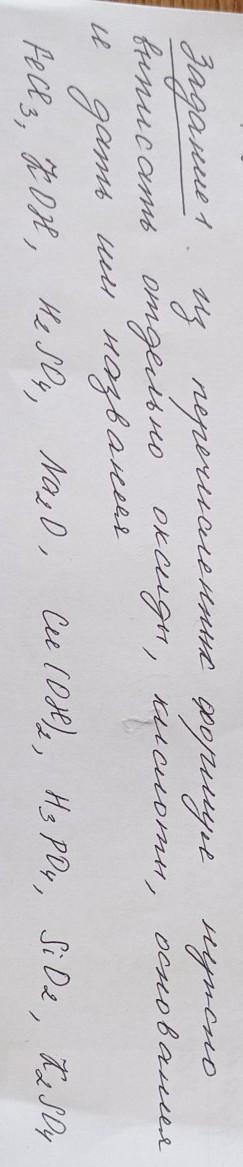 Задание 1. Из перечисленных формул нужно
выписать отдельно оксиды, кислоты, основания
и дать им названия
FeCl₃, KOH, H₂SO₄, Na₂O, Cu(OH)₂, H₃PO₄, SiO₂, K₂SO₄